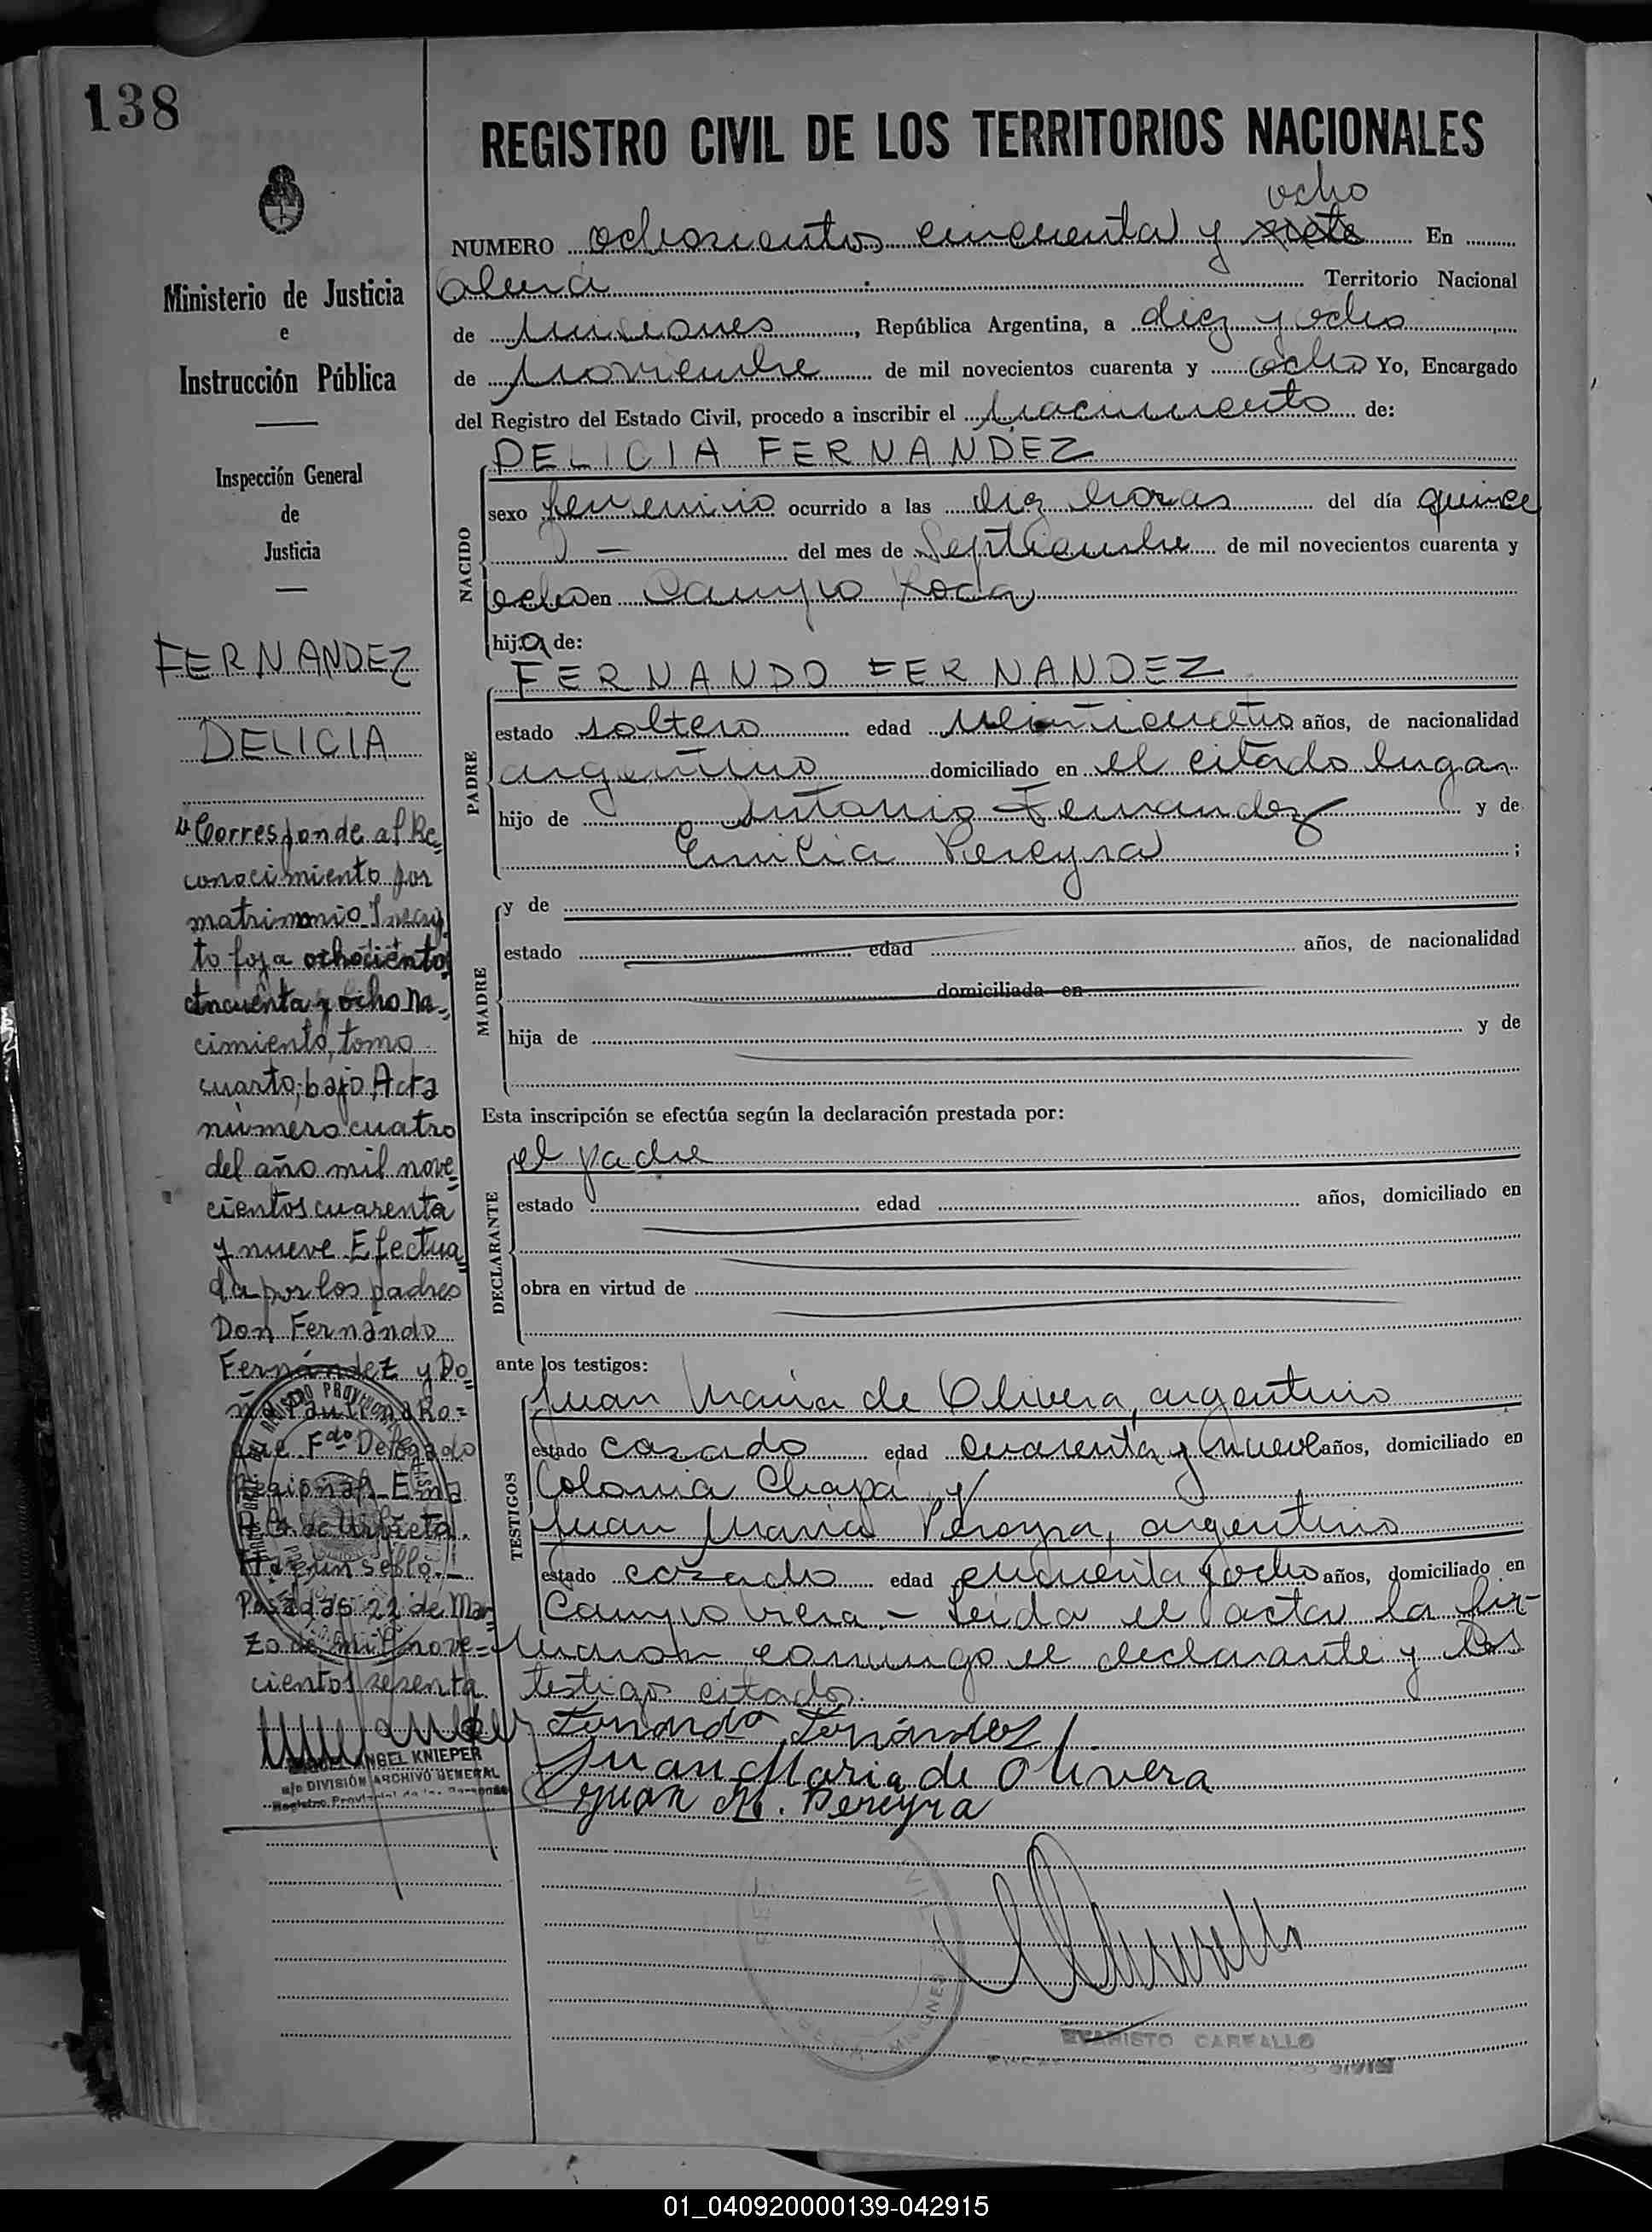 138
REGISTRO CIVIL DE LOS TERRITORIOS NACIONALES
ocho
NUMERO ochocientos cincuenta y siete En
Oberá Territorio Nacional
de Misiones, República Argentina, a diez y ocho
de Noviembre de mil novecientos cuarenta y ocho Yo, Encargado
del Registro del Estado Civil, procedo a inscribir el nacimiento de:
DELICIA FERNANDEZ
NACIDO
sexo femenino ocurrido a las diez horas del día quince
del mes de Septiembre de mil novecientos cuarenta y
ocho en Campo Roca
hija de:
FERNANDO FERNANDEZ
PADRE
estado soltero edad veinticuatro años, de nacionalidad
argentino domiciliado en el citado lugar
hijo de Antonio Fernandez y de
Emilia Pereyra ;
MADRE
y de
estado edad años, de nacionalidad
domiciliada en
hija de y de
Esta inscripción se efectúa según la declaración prestada por:
DECLARANTE
el padre
estado edad años, domiciliado en
obra en virtud de
ante los testigos:
TESTIGOS
Juan Maria de Olivera, argentino
estado casado edad cuarenta y nueve años, domiciliado en
Colonia Chapá y
Juan Maria Pereyra, argentino
estado casado edad cincuenta y ocho años, domiciliado en
Campo Viera - Leida el acta la fir-
maron conmigo el declarante y los
testigos citados.
Fernando Fernández
Juan Maria de Olivera
Juan M. Pereyra
EVARISTO CARFALLO
Ministerio de Justicia
e
Instrucción Pública
Inspección General
de
Justicia
FERNANDEZ
DELICIA
"Corresponde al Re-
conocimiento por
matrimonio Inscrip-
to foja ochociento
cincuenta y ocho Na-
cimiento, tomo
cuarto, bajo Acta
número cuatro
del año mil nove-
cientos cuarenta
y nueve Efectua-
da por los padres
Don Fernando
Fernández y Do-
ña Paulina Ro=
Fdo Delegado
Regional Ema
de Urbieta.
Hay un sello.
Posadas 22 de Mar-
zo de mil nove=
cientos sesenta.
ANGEL KNIEPER
a/c DIVISIÓN ARCHIVO GENERAL
Registro Provincial de las Personas
01_040920000139-042915